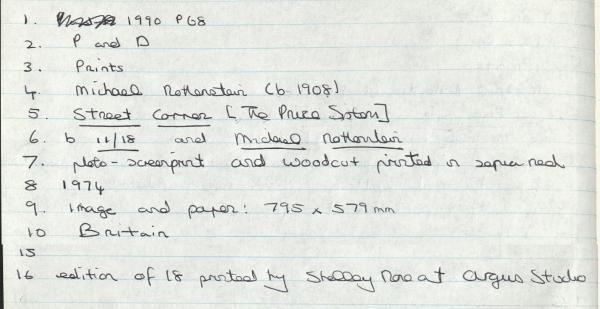 1. 1990 P68
2. P and D
3. Prints
4. Michael Rothenstein (b 1908)
5. Street Corner [The Price Sisters]
6. b 11/18 and Michael Rothenstein
7. photo-screenprint and woodcut printed in sepia red
8 1974
9. Image and paper: 795 x 579mm
10 Britain
15
16 edition of 18 printed by Shelley Rose at Argus Studio